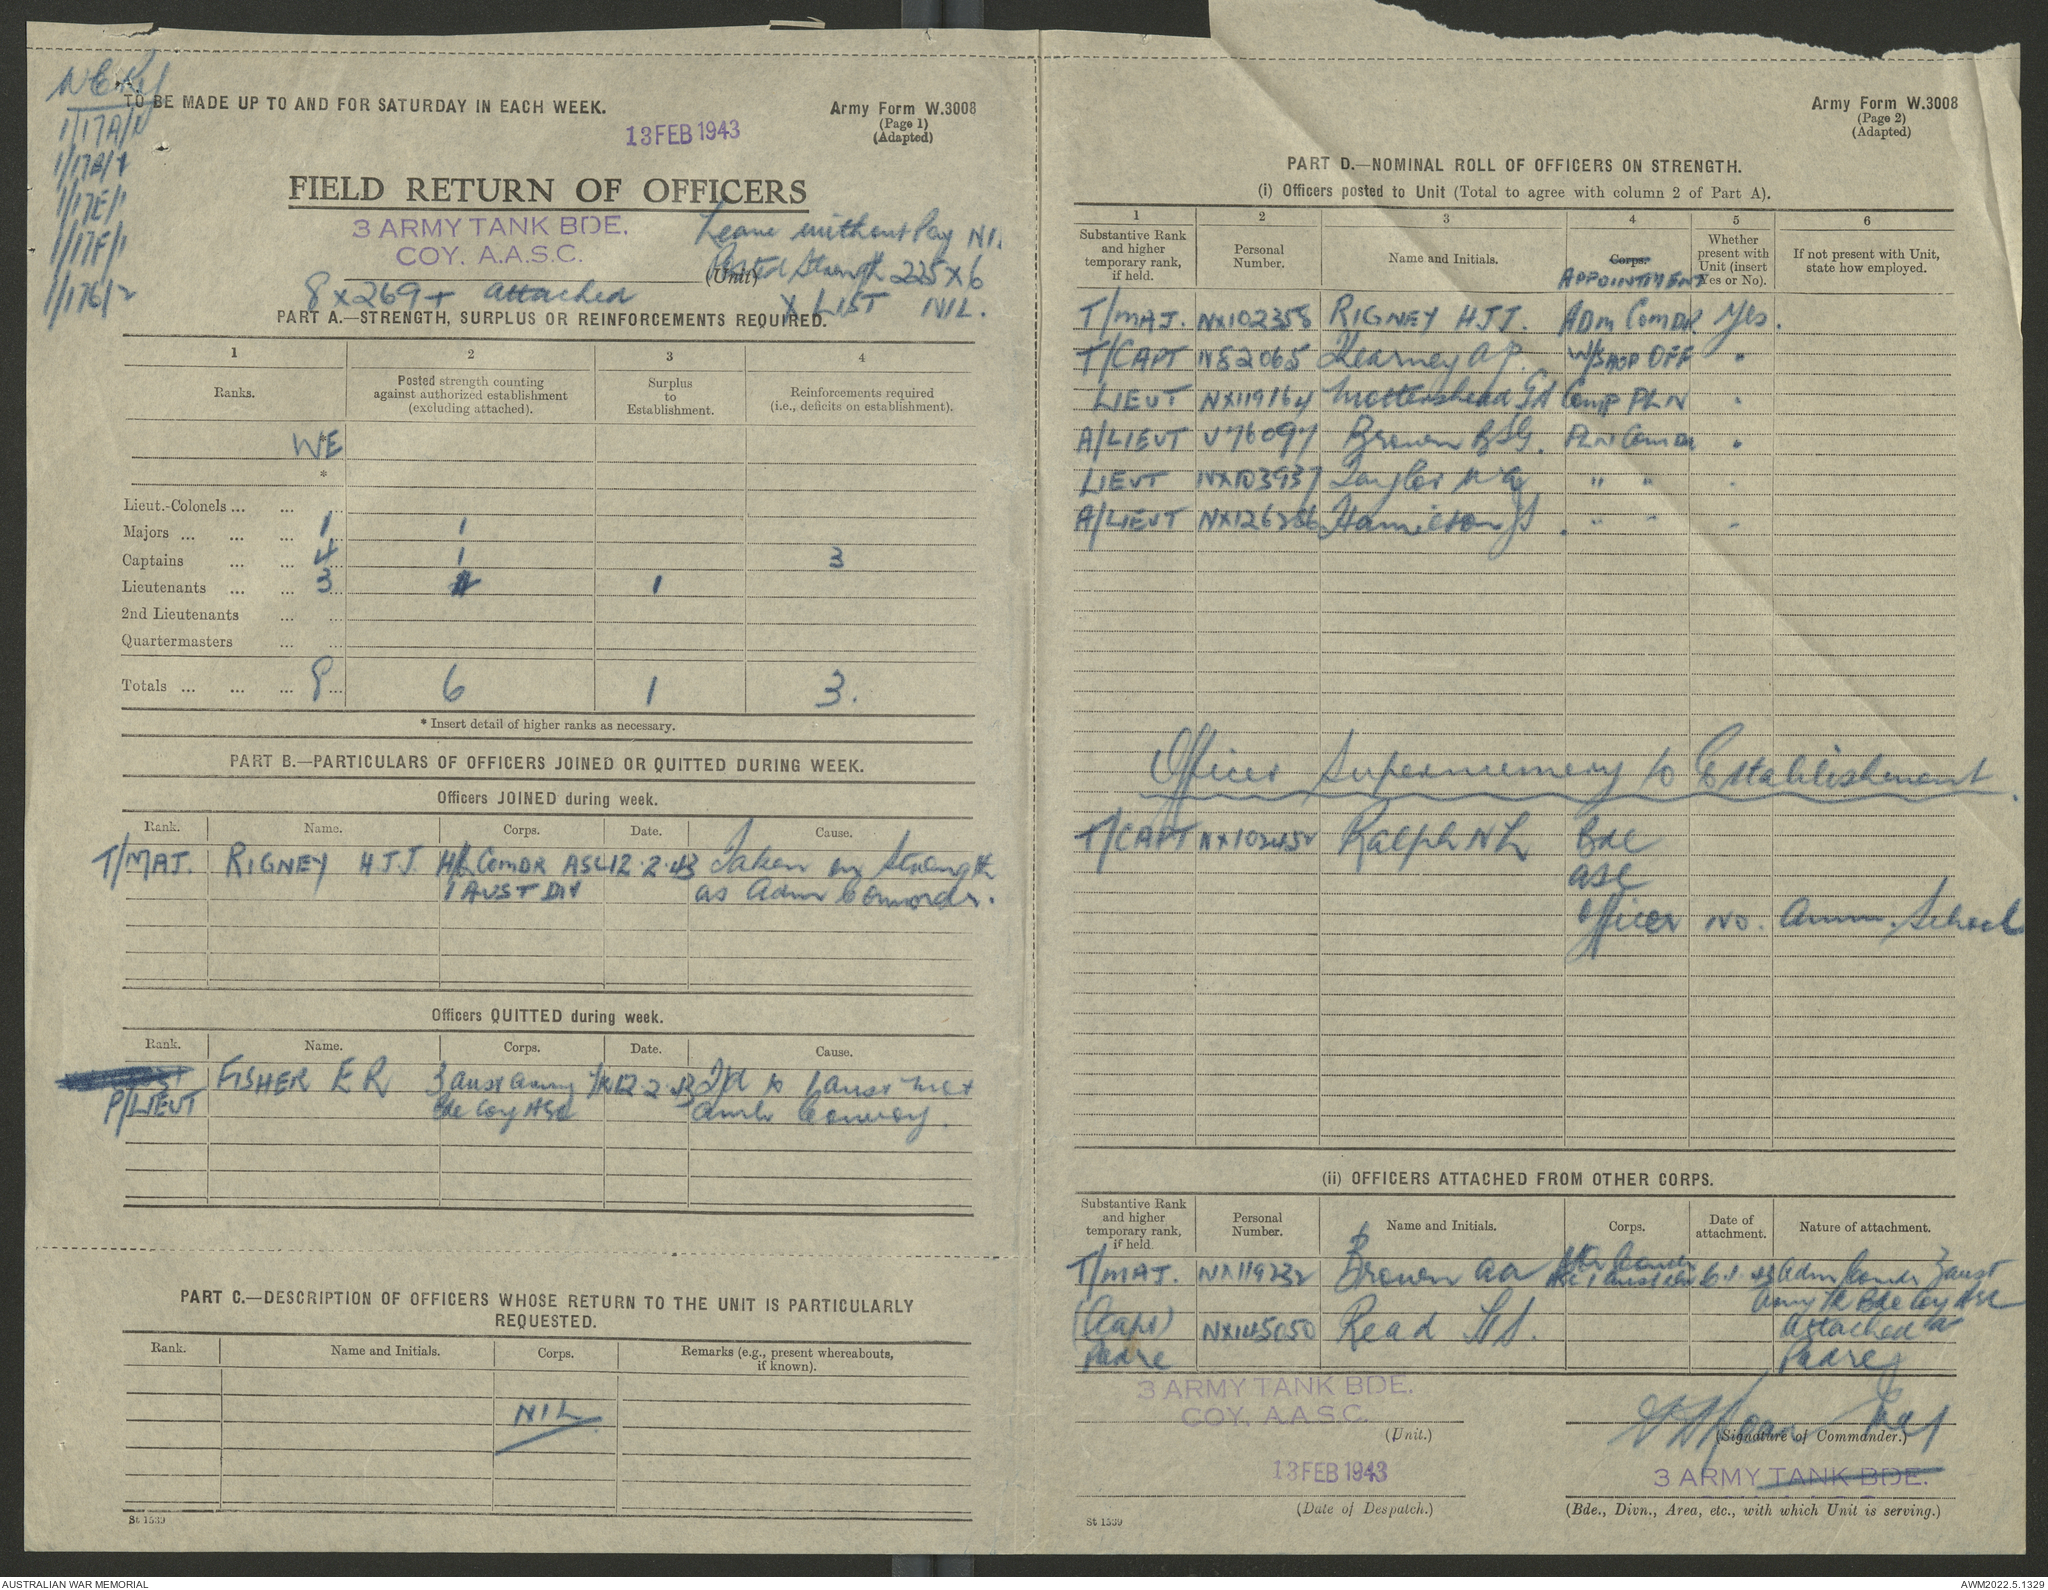 TO BE MADE UP TO AND FOR SATURDAY IN EACH WEEK.
Army Form W.3008
(Page 1)
(Adapted)
13 FEB 1943
1/17A/
1/17E/1
1/17F/1
1/17G/2
FIELD RETURN OF OFFICERS
3 ARMY TANK BDE.
COY. A.A.S.C.
(Unit)
Leave without Pay NIL
Posted Strength 225 x 6
X LIST NIL.
8 x 269 + attached
PART A.—STRENGTH, SURPLUS OR REINFORCEMENTS REQUIRED.
1 2 3 4
Ranks. Posted strength counting against authorized establishment (excluding attached). Surplus to Establishment. Reinforcements required (i.e., deficits on establishment).
WE
*
Lieut.-Colonels ... ... ...
Majors ... ... ... 1 1
Captains ... ... 4 1 3
Lieutenants ... ... 3 4 1
2nd Lieutenants ... ...
Quartermasters ... ...
Totals ... ... ... 8 6 1 3.
* Insert detail of higher ranks as necessary.
PART B.—PARTICULARS OF OFFICERS JOINED OR QUITTED DURING WEEK.
Officers JOINED during week.
Rank. Name. Corps. Date. Cause.
T/MAJ. RIGNEY H J J. COMDR ASC 12.2.43 Taken on Strength
1 AUST DIV as Adm Commdr.
Officers QUITTED during week.
Rank. Name. Corps. Date. Cause.
P/LIEUT FISHER E R 3 Aust Army Tk 12.2.43 Tfd to 1 Aust Mot
Bde Coy ASC Amb Convoy.
PART C.—DESCRIPTION OF OFFICERS WHOSE RETURN TO THE UNIT IS PARTICULARLY
REQUESTED.
Rank. Name and Initials. Corps. Remarks (e.g., present whereabouts, if known).
NIL
St 1539
Army Form W.3008
(Page 2)
(Adapted)
PART D.—NOMINAL ROLL OF OFFICERS ON STRENGTH.
(i) Officers posted to Unit (Total to agree with column 2 of Part A).
1 2 3 4 5 6
Substantive Rank and higher temporary rank, if held. Personal Number. Name and Initials. Corps. APPOINTMENT Whether present with Unit (insert Yes or No). If not present with Unit, state how employed.
T/MAJ. NX102358 RIGNEY H J J. ADM COMDR Yes.
T/CAPT N82065 Kearney A P. W/SHOP OFF "
LIEUT NX119164 Mottershead G A Comp PLN "
A/LIEUT V76097 Brown B S G. PLN Comdr "
LIEUT NX103937 Taylor " " "
A/LIEUT Hamilton J. " " "
Officer Supernumery to Establishment.
T/CAPT NX102452 Ralph N L Bde
ASC
Officer NO. Amm. School
(ii) OFFICERS ATTACHED FROM OTHER CORPS.
Substantive Rank and higher temporary rank, if held. Personal Number. Name and Initials. Corps. Date of attachment. Nature of attachment.
T/MAJ. NX119232 Brown Adm Comdr 3 Aust
Army Tk Bde Coy ASC
(Capt) NX145050 Read Attached as
Padre Padre
3 ARMY TANK BDE.
COY. A.A.S.C.
(Unit.)
Maj
(Signature of Commander.)
13 FEB 1943
(Date of Despatch.)
3 ARMY TANK BDE.
(Bde., Divn., Area, etc., with which Unit is serving.)
St 1539
AUSTRALIAN WAR MEMORIAL
AWM2022.5.1329